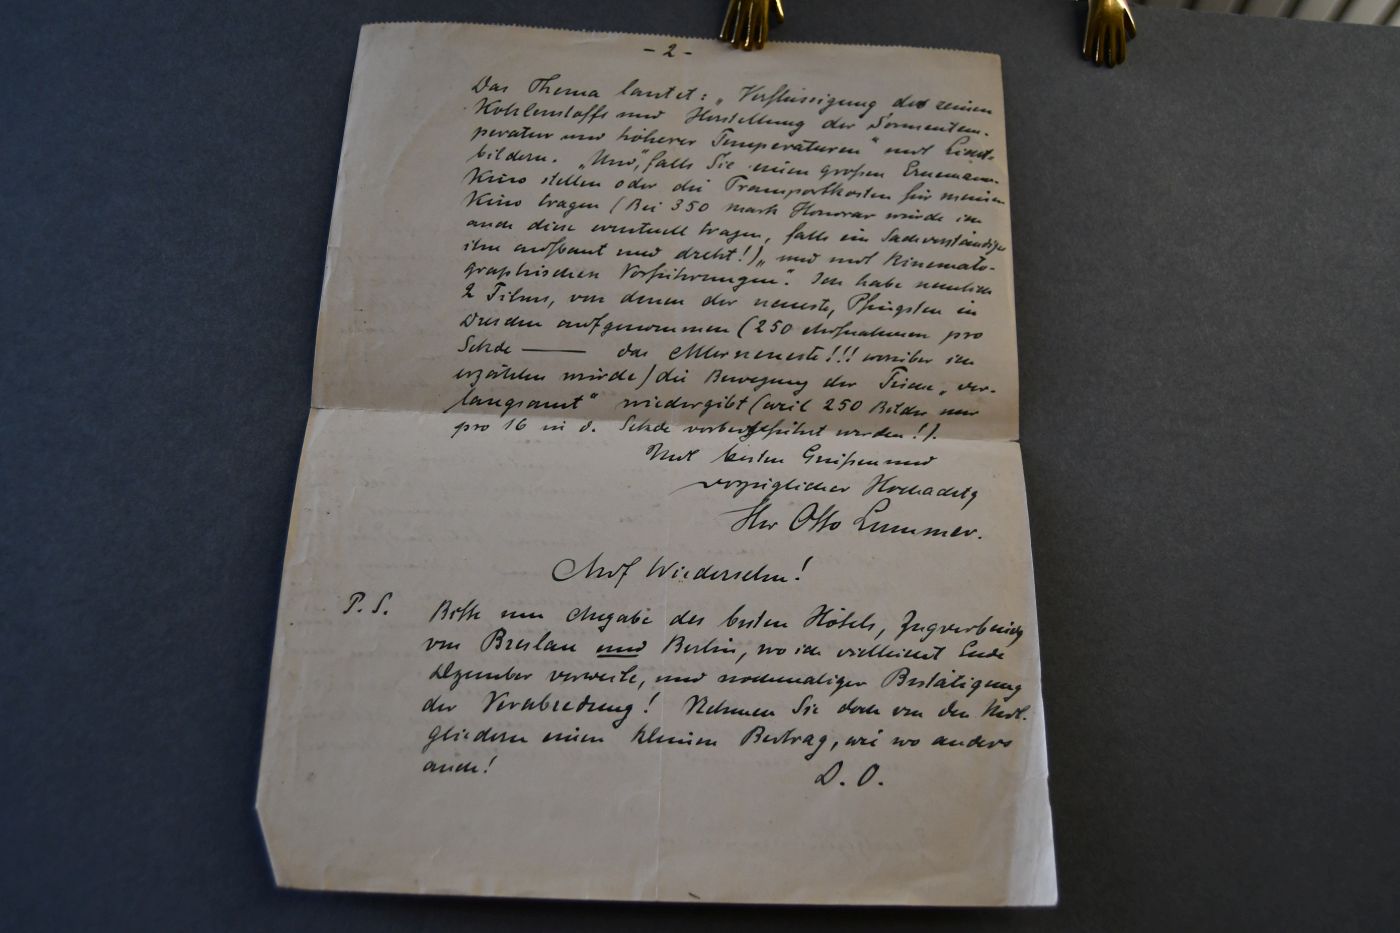 - 2 -
Das Thema lautet: „Verflüssigung des reinen
Kohlenstoffs und Herstellung der Sonnentem-
peratur und höherer Temperaturen" mit Licht-
bildern. „Und", falls Sie einen großen Ernemann-
Kino stellen oder die Transportkosten für meinen
Kino tragen (Bei 350 Mark Honorar würde ich
auch diese eventuell tragen, falls ein Sachverständiger
ihn aufbaut und dreht!) „und mit kinemato-
graphischen Vorführungen". Ich habe nämlich
2 Films, von denen der neueste, Pfingsten in
Dresden aufgenommen (250 Aufnahmen pro
Sekde —— das Allerneueste!!! worüber ich
erzählen würde) die Bewegung der Fische „ver-
langsamt" wiedergibt (weil 250 Bilder nur
pro 16 in d. Sekde vorbeigeführt werden!).
Mit besten Grüßen und
vorzüglicher Hochachtg
Ihr Otto Lummer.
Auf Wiedersehn!
P. S. Bitte um Angabe des besten Hôtels, Zugverbindg
von Breslau und Berlin, wo ich vielleicht Ende
Dezember verweile, und nochmaliger Bestätigung
der Verabredung! Nehmen Sie doch von den Mit-
gliedern einen kleinen Beitrag, wie wo anders
auch! D. O.